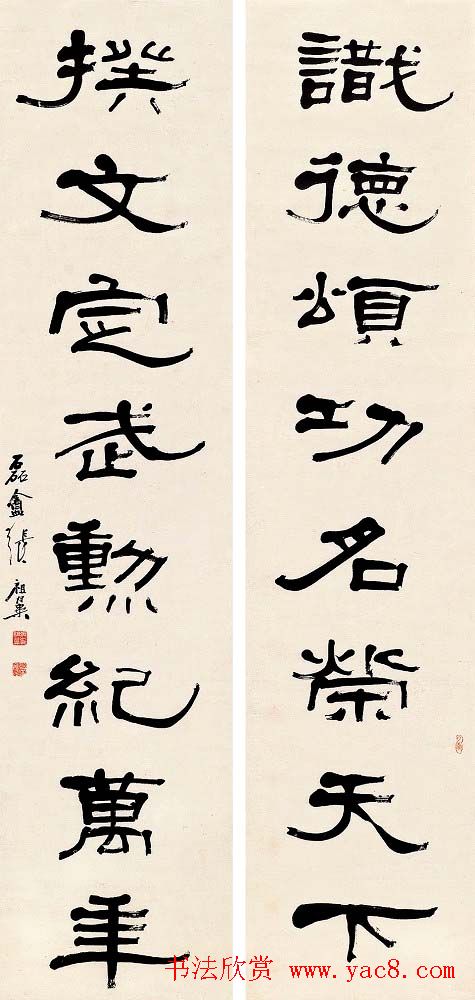 識德頌功名榮天下
撰文定武勲紀萬年
磊盦張祖翼
书法欣赏 www.yac8.com